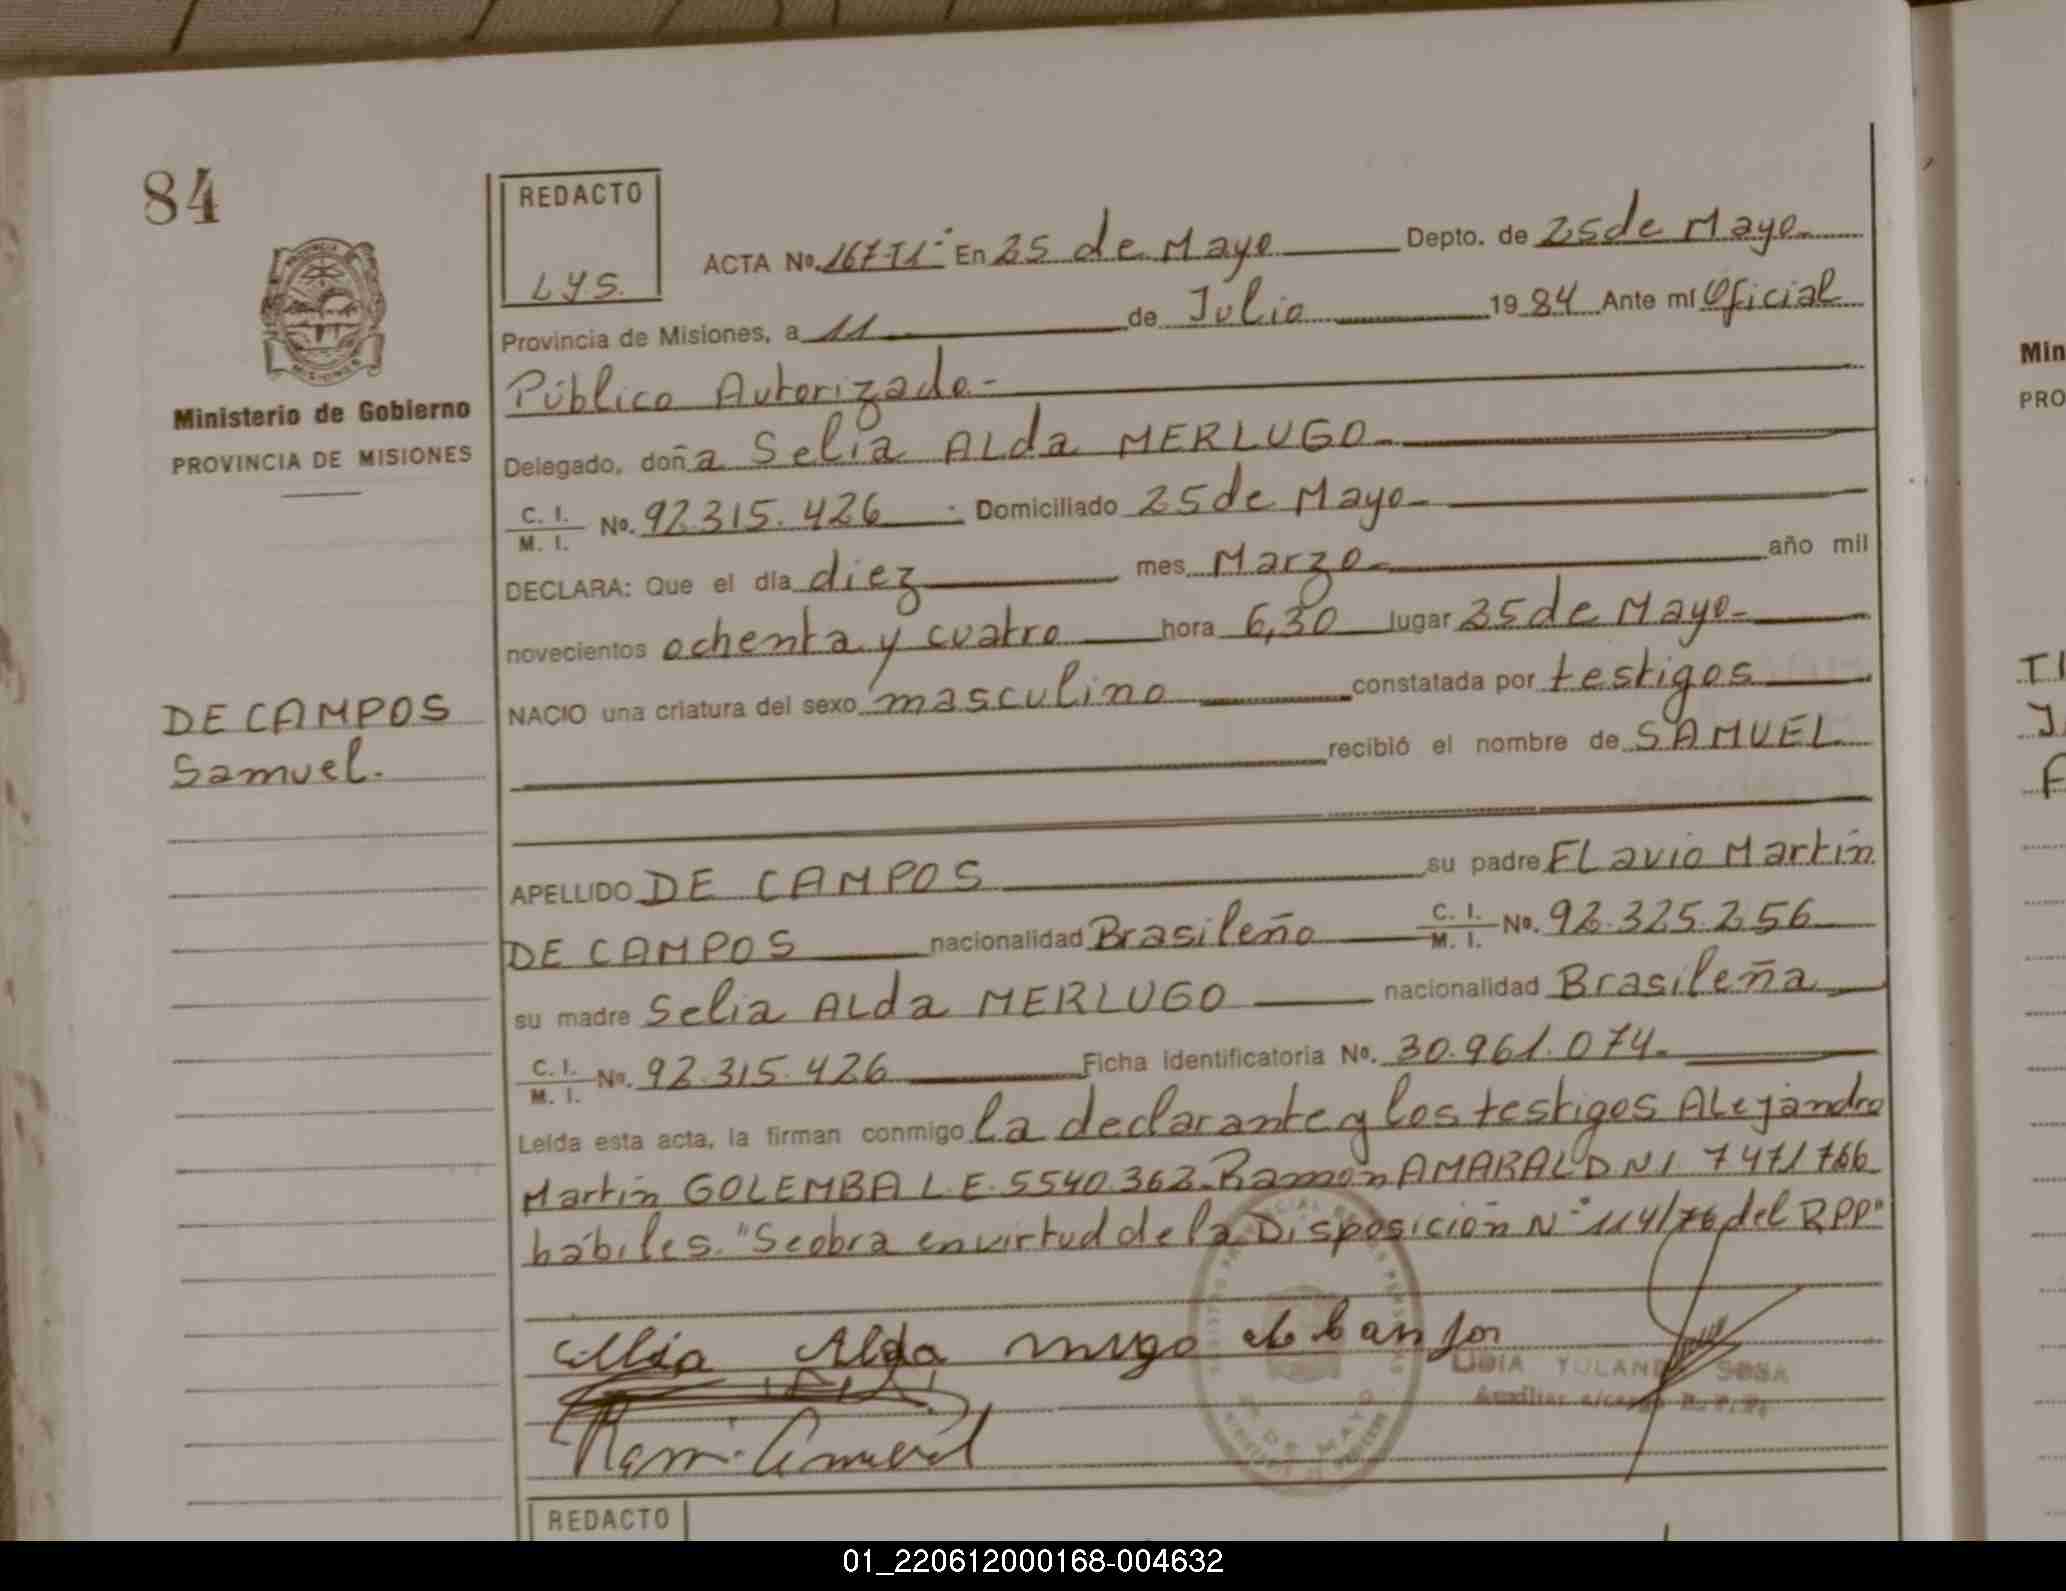 84
REDACTO
LYS.
ACTA No. 167-T1° En 25 de Mayo Depto. de 25 de Mayo
Provincia de Misiones, a 11 de Julio 1984 Ante mí Oficial
Público Autorizado.-
Ministerio de Gobierno
PROVINCIA DE MISIONES
Delegado, doña Selia Alda MERLUGO
C. I.
M. I. No. 92.315.426 Domiciliado 25 de Mayo-
DECLARA: Que el día diez mes Marzo año mil
novecientos ochenta y cuatro hora 6,30 lugar 25 de Mayo-
NACIO una criatura del sexo masculino constatada por testigos
recibió el nombre de SAMUEL
DE CAMPOS
Samuel.
APELLIDO DE CAMPOS su padre FLavio Martín
DE CAMPOS nacionalidad Brasileño C. I. M. I. No. 92.325.256
su madre Selia ALda MERLUGO nacionalidad Brasileña
C. I.
M. I. No. 92.315.426 Ficha identificatoria No. 30.961.074.
Leída esta acta, la firman conmigo la declarante y los testigos ALejandro
Martín GOLEMBA L.E. 5540.362. Ramón AMARAL DNI 7471766
hábiles. "Se obra en virtud de la Disposición N° 114/76 del RPP"
Alda
LIDIA YOLANDA SOSA
Auxiliar a/cargo R. P. P.
25 DE MAYO
REDACTO
Min
PRO
01_220612000168-004632